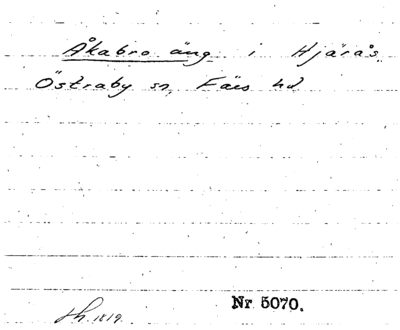 Åkabro äng i Hjärås,
Östraby sn, Färs hd
Nr 5070.
sk. 1819.